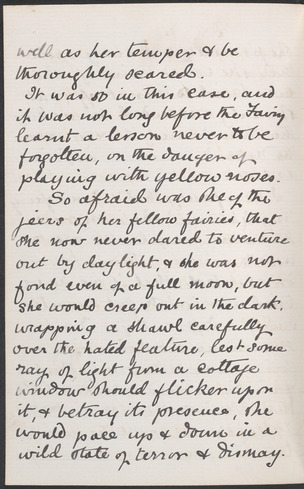 well as her temper & be
thoroughly scared.
It was so in this case, and
it was not long before the Fairy
learnt a lesson never to be
forgotten, on the danger of
playing with yellow noses.
So afraid was she of the
jeers of her fellow fairies, that
she now never dared to venture
out by daylight, & she was not
fond even of a full moon, but
she would creep out in the dark,
wrapping a shawl carefully
over the hated feature, lest some
ray of light from a cottage
window should flicker upon
it, & betray its presence, she
would pace up & down in a
wild state of terror & dismay.